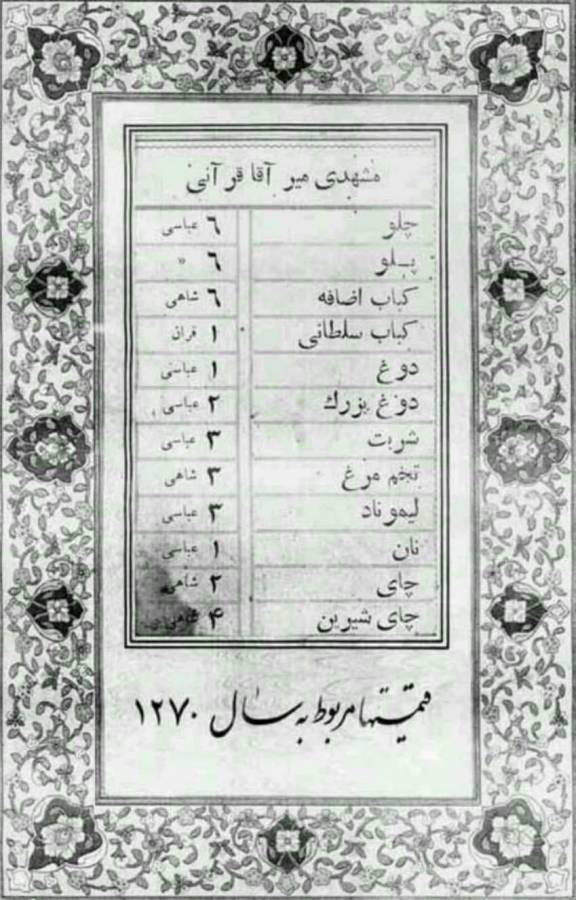 مشهدی میر آقا قرآنی
چلو ۶ عباسی
پلو ۶ »
کباب اضافه ۶ شاهی
کباب سلطانی ۱ قران
دوغ ۱ عباسی
دوغ بزرك ۲ عباسی
شربت ۳ عباسی
تخم مرغ ۳ شاهی
لیموناد ۳ عباسی
نان ۱ عباسی
چای ۲ شاهی
چای شیرین ۴ شاهی
قیمتها مربوط به سال ۱۲۷۰